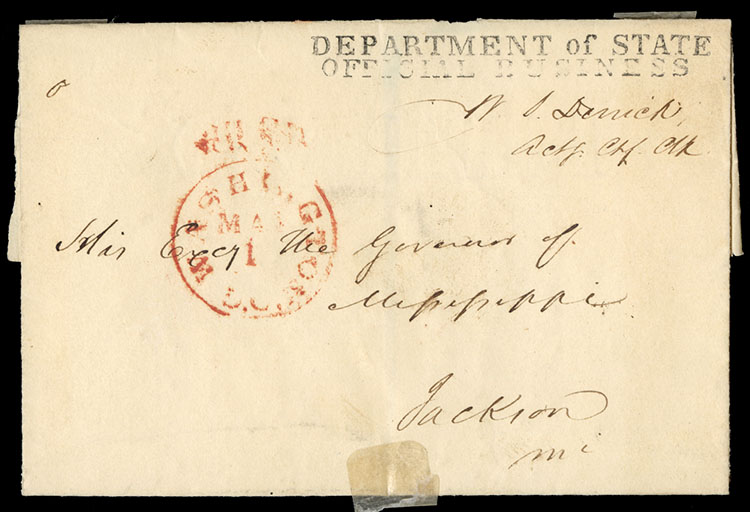 DEPARTMENT of STATE
OFFICIAL BUSINESS
W. S. Derrick,
Actg. Chf. Clk
WASHINGTON
MAY
1
D.C.
His Excy the Governor of
Mississippi
Jackson
mi